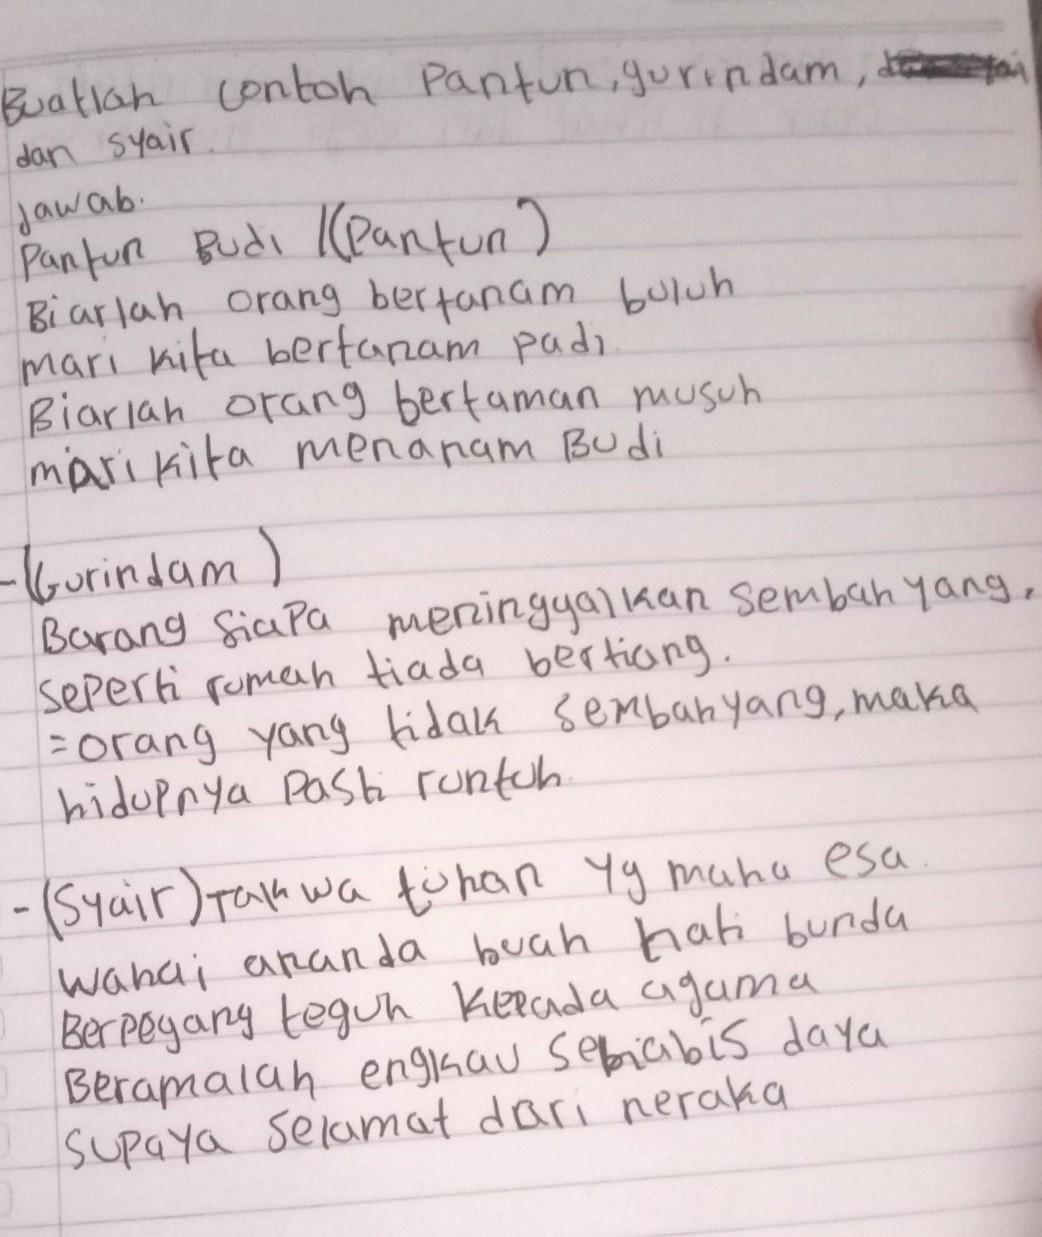 Buatlah contoh Pantun, gurindam,
dan syair.
Jawab.
Pantun Budi (Pantun)
Biarlah orang bertanam buluh
mari kita bertanam padi.
Biarlah orang bertaman musuh
mari kita menanam Budi
- (Gurindam)
Barang siapa meninggalkan sembah yang,
seperti rumah tiada bertiang.
= orang yang tidak sembahyang, maka
hidupnya pasti runtuh.
- (Syair) Takwa tuhan yg maha esa.
wahai ananda buah hati bunda
Berpegang teguh kepada agama
Beramalah engkau sehabis daya
supaya selamat dari neraka